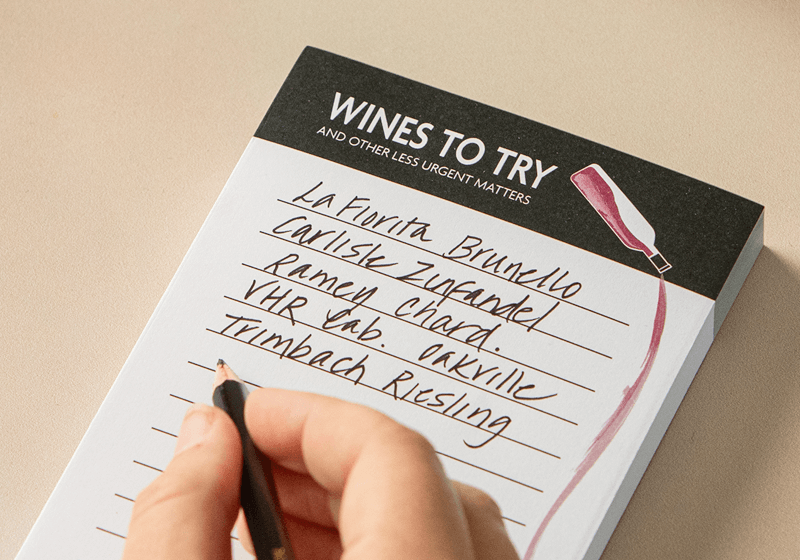 WINES TO TRY
AND OTHER LESS URGENT MATTERS
La Fiorita Brunello
Carlisle Zinfandel
Ramey Chard.
VHR Cab. Oakville
Trimbach Riesling